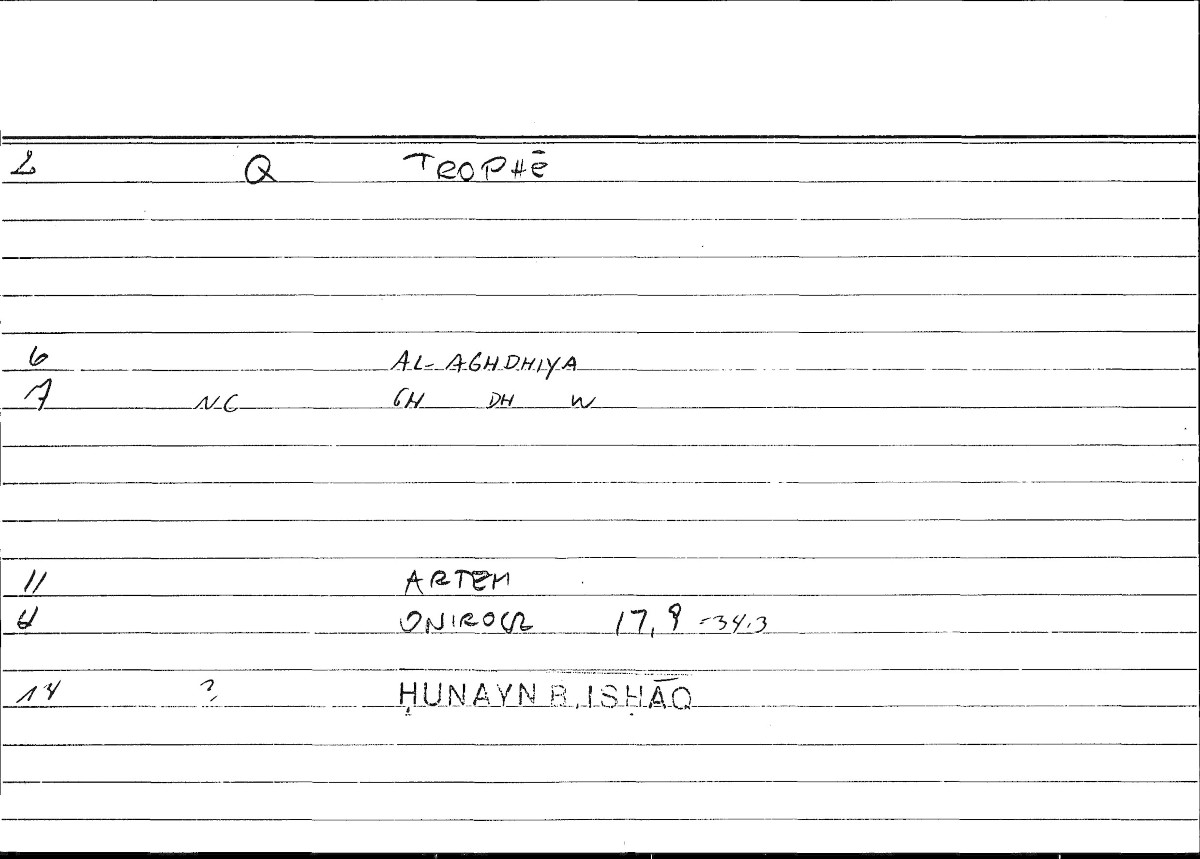 2 Q TROPHĒ
6 AL-AGHDHIYA
7 NC GH DH W
11 ARTEM
ONIROCR 17,9 =34.3
14 ? ḤUNAYN B. ISḤĀQ